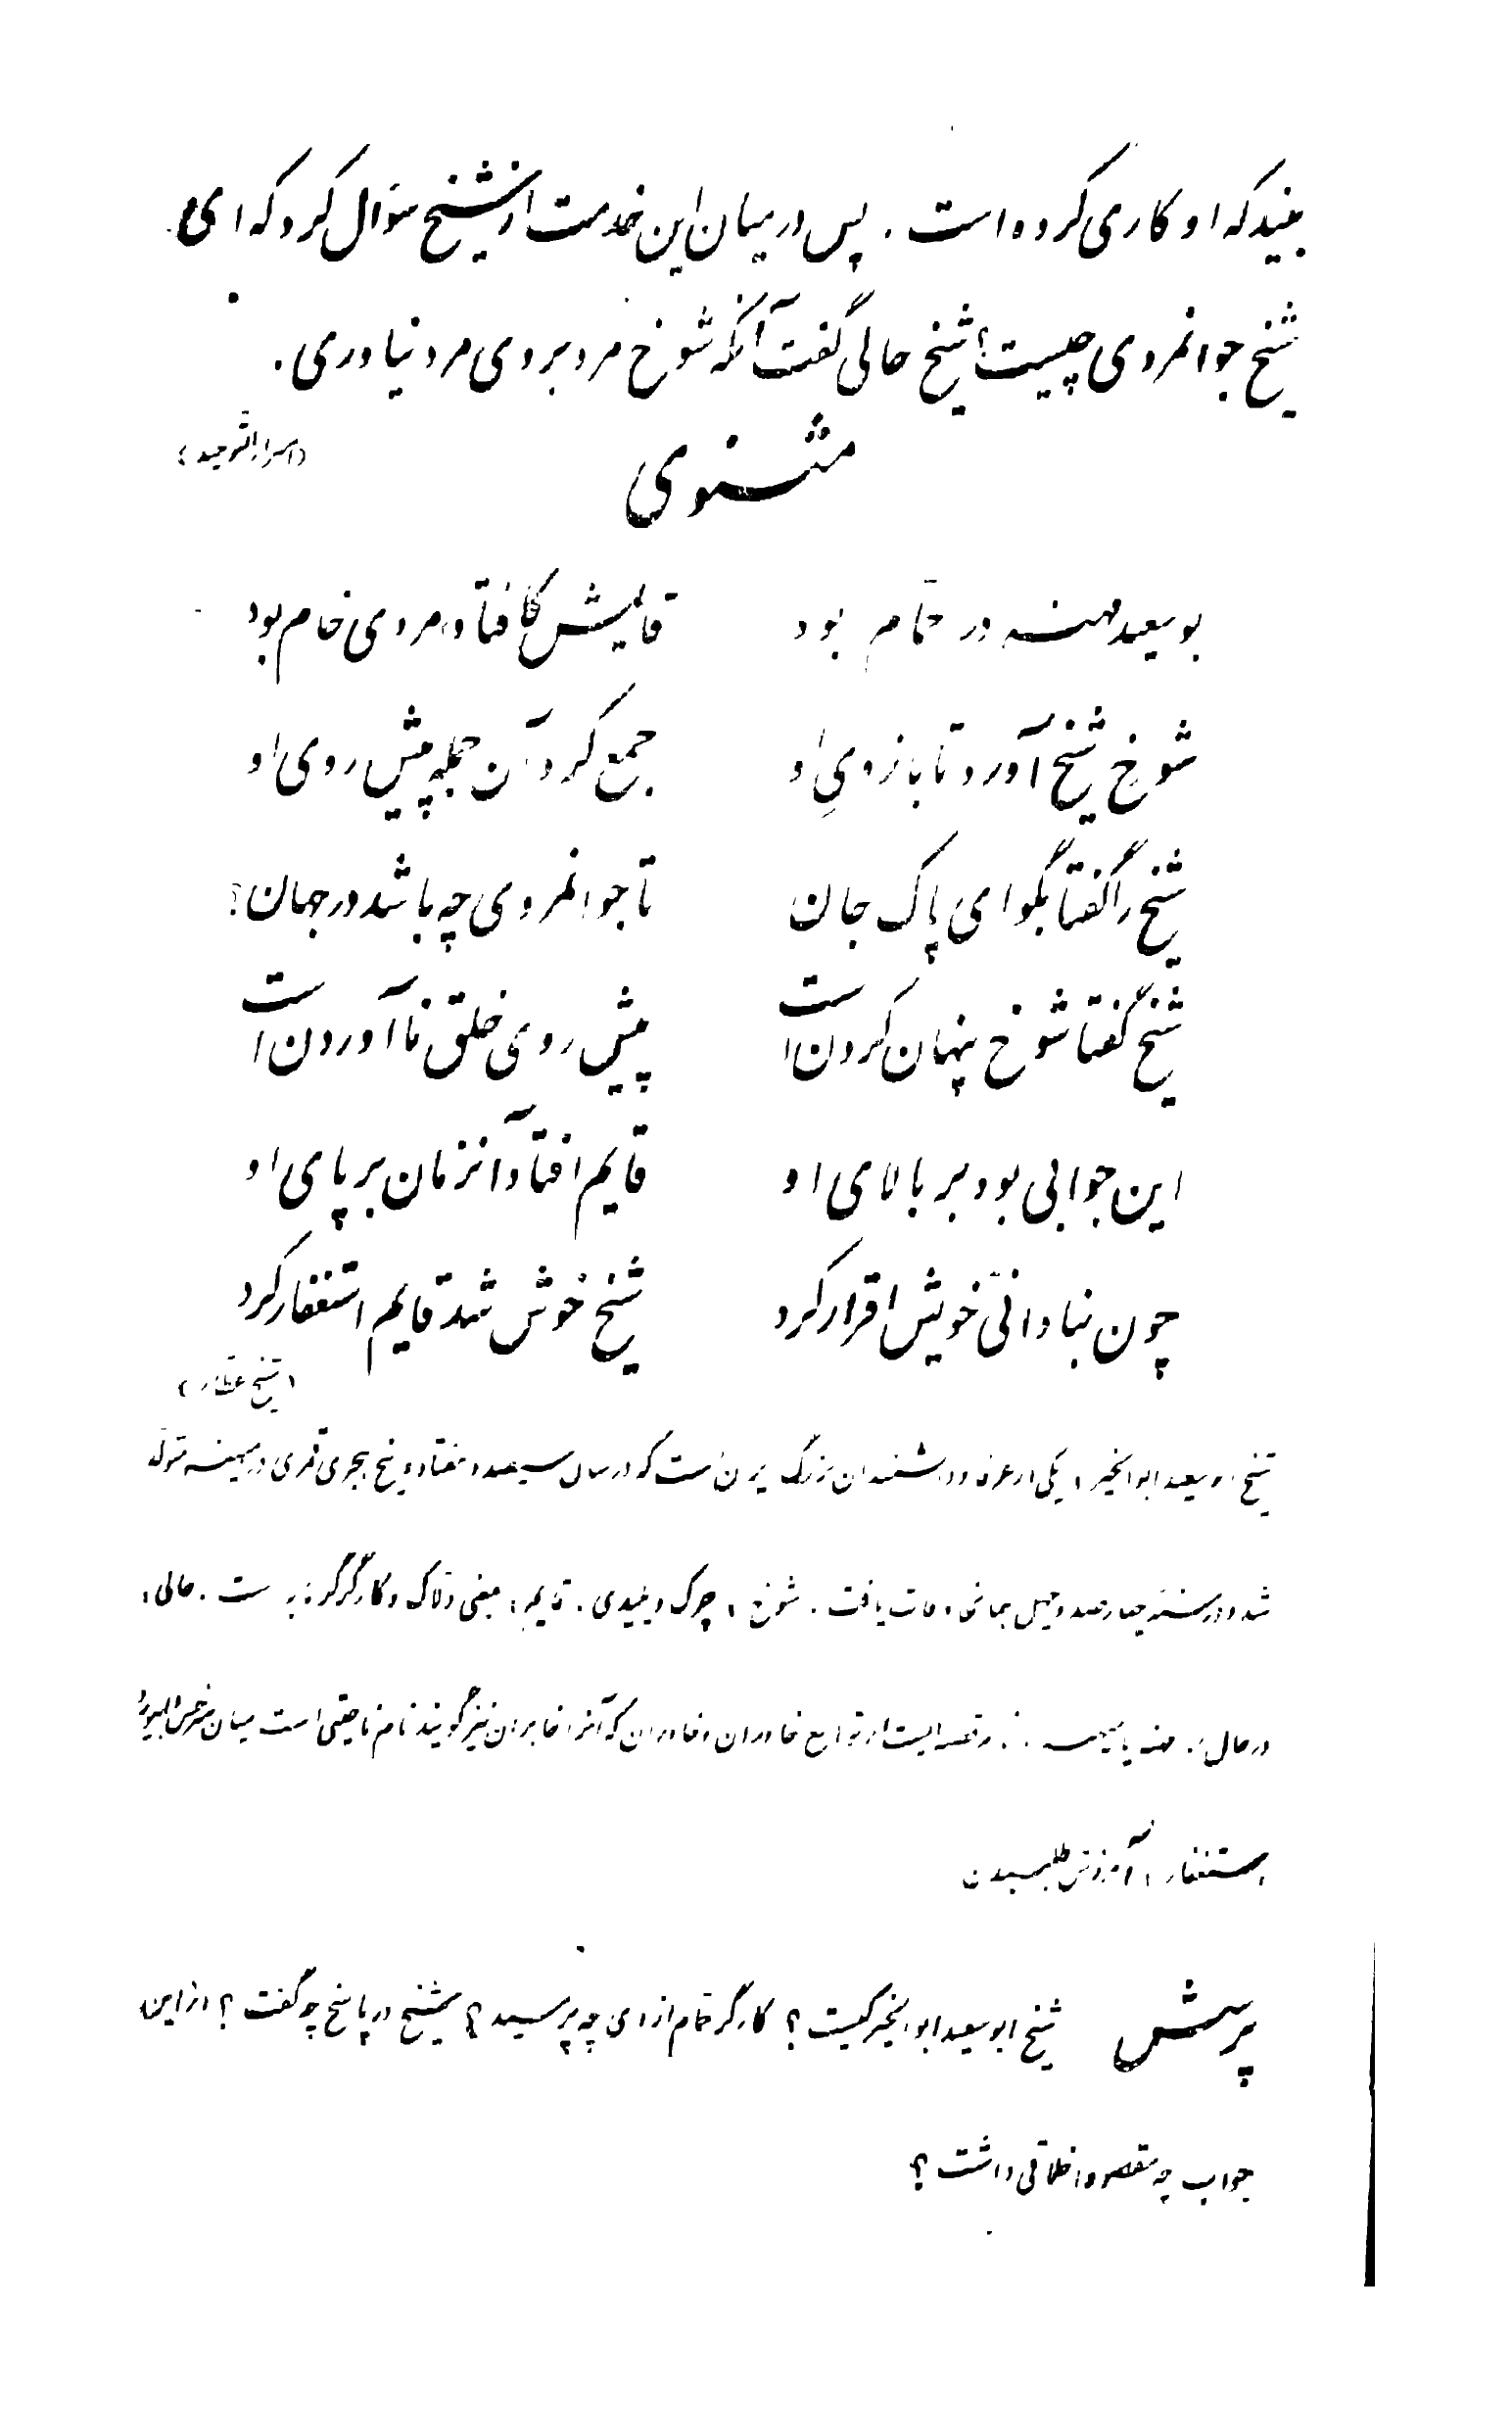 بیند که او کاری کرده است . پس در میان این خدمت از شیخ سؤال کرد که ای
شیخ جوانمردی چیست؟ شیخ حالی گفت آنکه شوخ مرد بروی مرد نیاوری .
(اسرارالتوحید)
مثنوی
بوسعید مهنه در حمّام بود قایمش کافتاد، مردی خام بود
شوخ شیخ آورد تا بازویِ او جمع کرد آن جمله پیش روی او
شیخ را گفتا بگو ای پاک جان تا جوانمردی چه باشد در جهان؟
شیخ گفتا شوخ پنهان کردن است پیش روی خلق ناآوردن است
این جوابی بود بر بالای او قایم افتاد آنزمان بر پای او
چون بنادانّی خویش اقرار کرد شیخ خوش شد قایم استغفار کرد
(شیخ عطّار)
شیخ ابوسعید ابوالخیر، یکی از عرفا و دانشمندان بزرگ ایران است که در سال سیصد و هفتاد و پنج هجری قمری در میهنه متولّد
شد و در سنهٔ چهارصد و چهل بمانجا وفات یافت . شوخ، چرک و پلیدی . قایم، بمعنی دلّاک و کارگر گرمابه است . حالی،
در حال . مهنه یا میهنه قصبه ایست از توابع خاوران و خاوران که آنرا خابران نیز گویند نام ناحیتی است میان سرخس و ابیورد
استغفار، آمرزش طلبیدن
پرسش شیخ ابوسعید ابوالخیر کیست؟ کارگر حمّام از وی چه پرسید؟ شیخ در پاسخ چه گفت؟ از این
جواب چه مقصود اخلاقی داشت؟